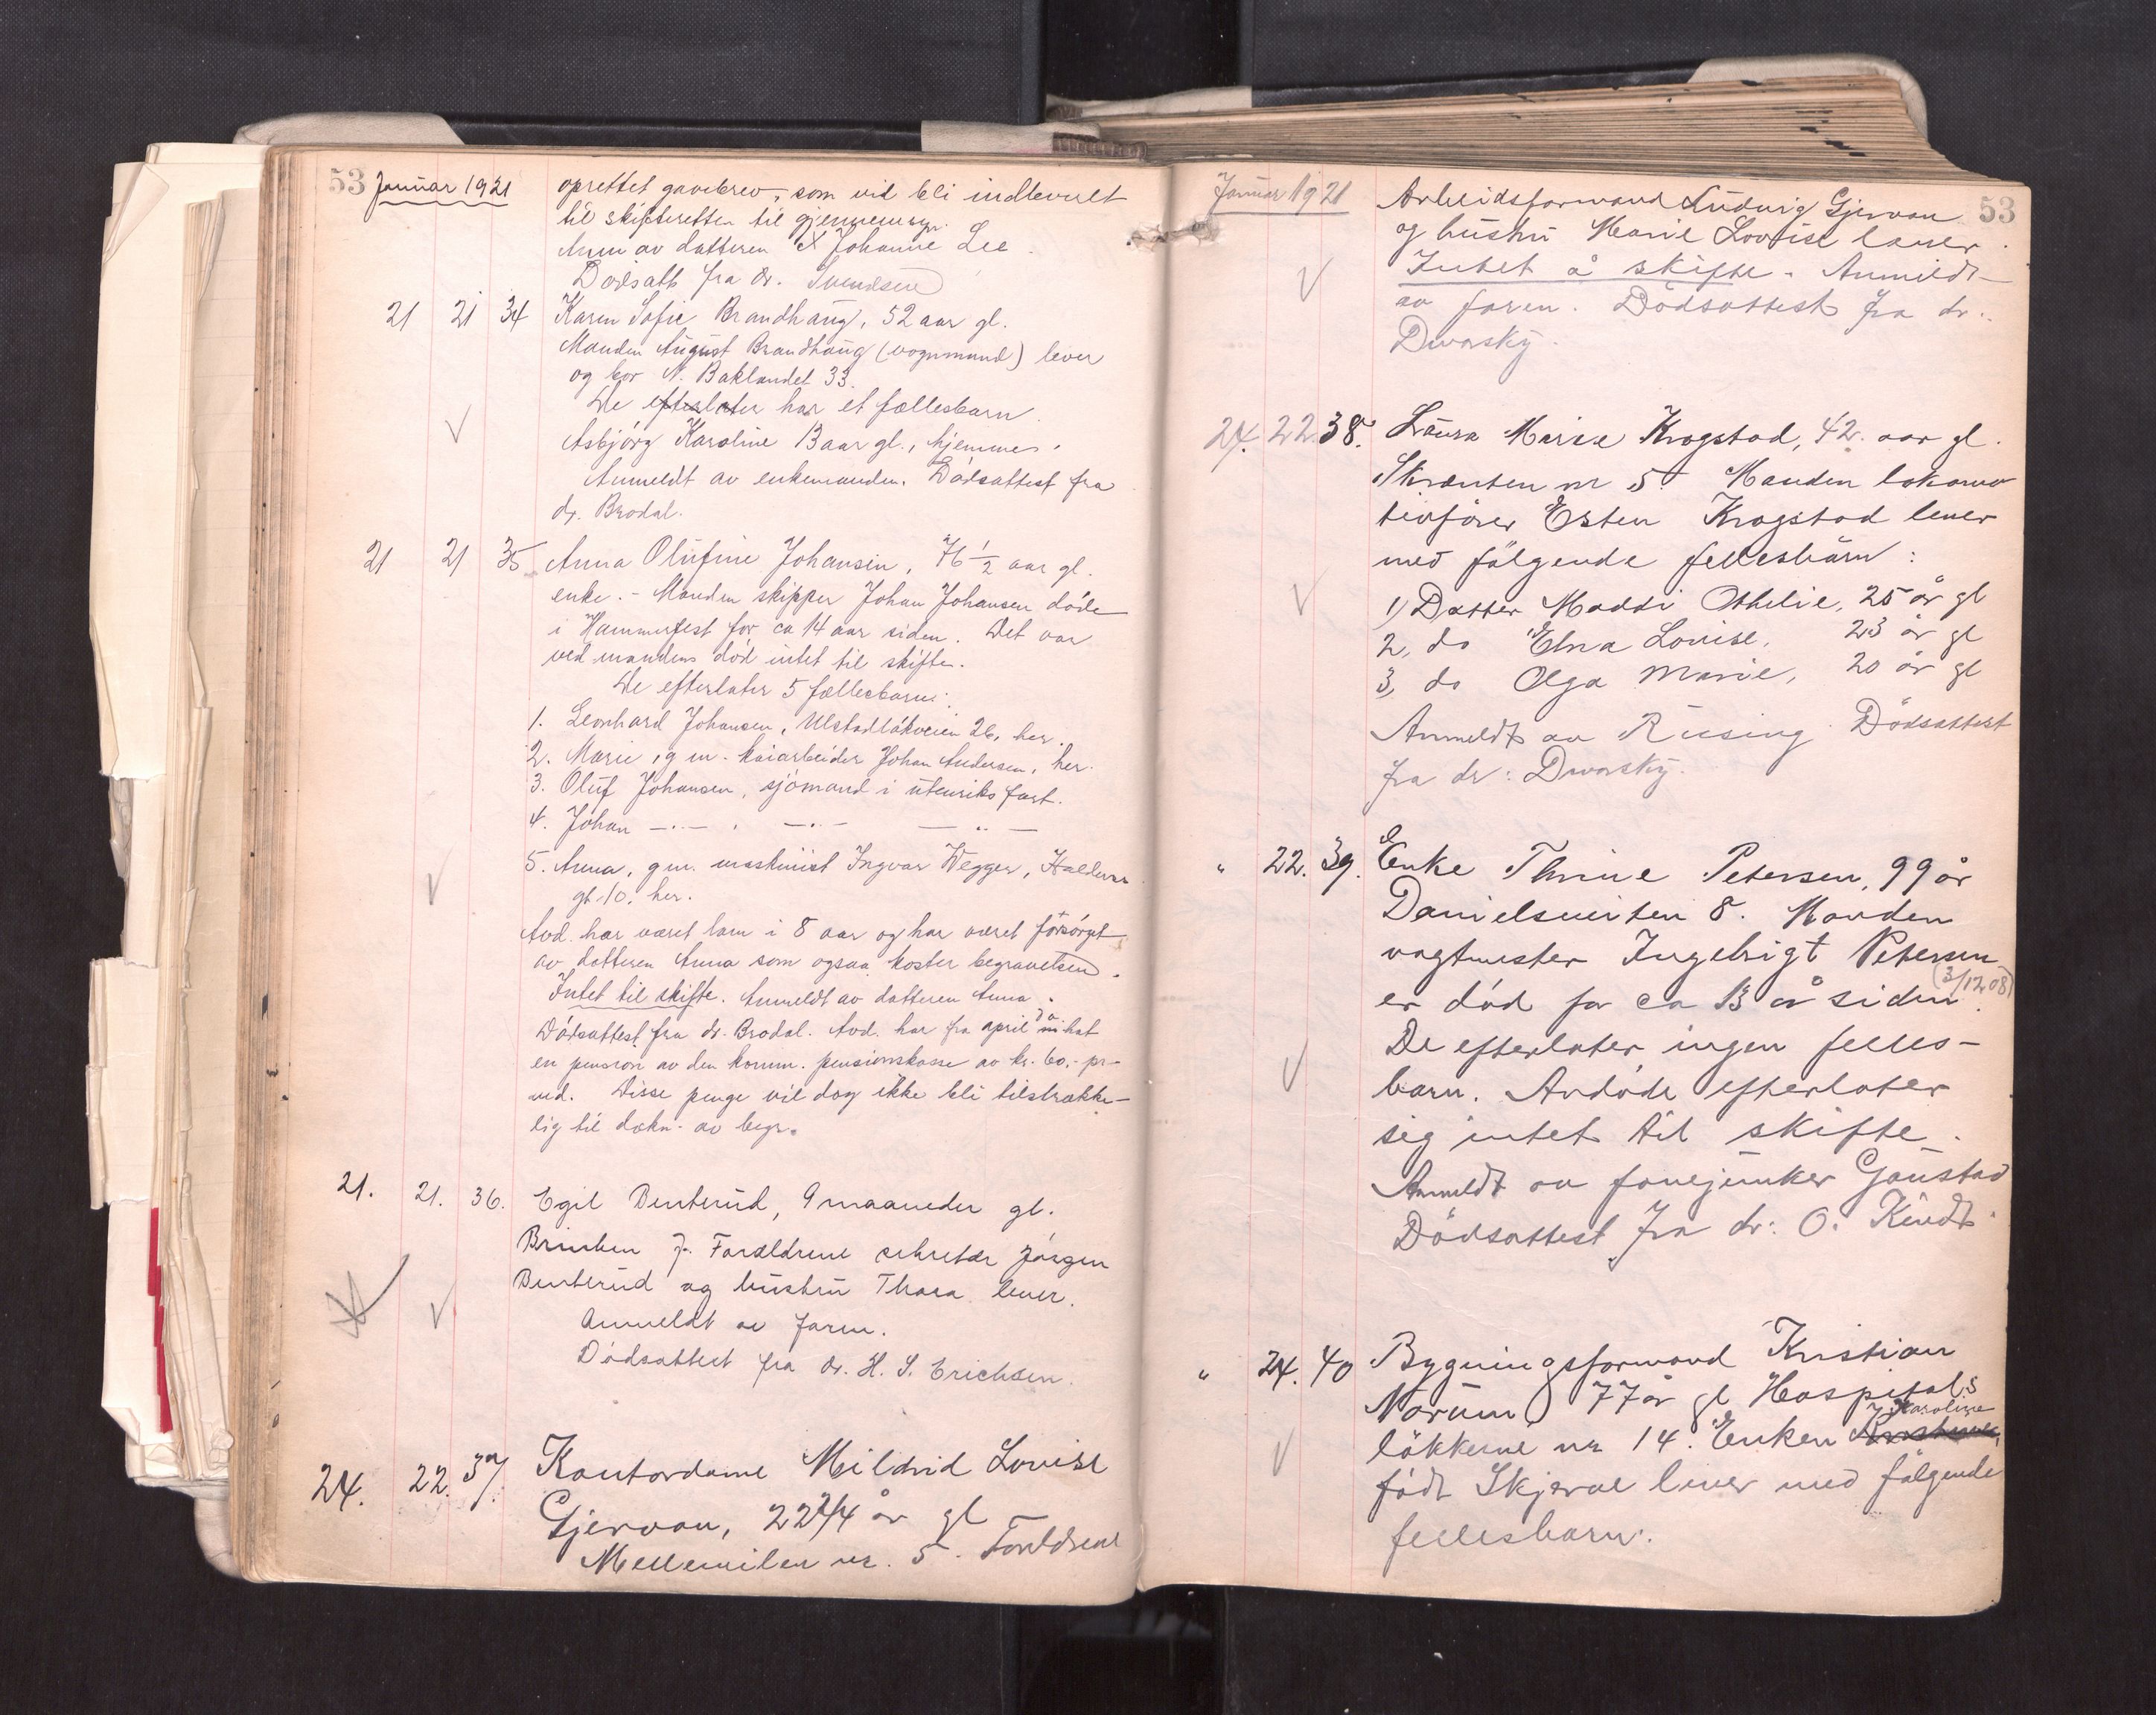 53 Januar 1921
oprettet gavebrev, som vil bli indleveret
til skifteretten til gjennemsyn.
Anm av datteren Johanne Lee
Dødsatt fra dr. Svendsen
21 21 34 Karen Sofie Brandhaug, 52 aar gl.
Manden August Brandhaug (vognmand) lever
og bor N. Baklandet 33.
De efterlater har et fællesbarn
Asbjørg Karoline 13 aar gl., hjemme.
Anmeldt av enkemanden. Dødsattest fra
dr. Brodal.
21 21 35 Anna Olufine Johansen, 76 1/2 aar gl.
enke. - Manden skipper Johan Johansen døde
i Hammerfest for ca 14 aar siden. Det var
ved mandens død intet til skifte.
De efterlater 5 fællesbarn:
1. Leonhard Johansen, Ulstadløkveien 26, her.
2. Marie, g m. kaiarbeider Johan Andersen, her.
3. Oluf Johansen, sjömand i utenriks fart.
4. Johan —„— , —„— —„—
5. Anna, g m. maskinist Ingvar Wegger,
gt 10, her.
Avd. har været lam i 8 aar og har været forsørget
av datteren Anna som ogsaa koster begravelsen.
Intet til skifte. Anmeldt av datteren Anna.
Dødsattest fra dr. Brodal. Avd. har fra april hat
en pension av den komm. pensionskasse av kr. 60,- pr
md. Disse penge vil dog ikke bli tilstrække-
lig til dækn. av begr.
21. 21. 36. Egil Benterud, 9 maaneder gl.
Brinken 7. Forældrene sekretær Jørgen
Benterud og hustru Thora lever.
Anmeldt av faren.
Dödsattest fra dr. H. S. Erichsen.
24. 22. 37. Kontordame Mildrid Louise
Gjervan, 22 3/4 år gl
Mellemilen nr. 5. Foreldrene
Januar 1921 53
Arbeidsformand Ludvig Gjervan
og hustru Marie Lovise lever.
Intet å skifte. Anmeldt
av faren. Dödsattest fra dr.
Dworsky.
24. 22. 38. Laura Marie Krogstad, 42 aar gl.
Skrænten nr 5. Manden lokomo
tivfører Esten Krogstad lever
med følgende fellesbarn:
1) Datter Maddi Othelie, 25 år gl
2, do Elna Louise, 23 år gl
3, do Olga Marie, 20 år gl
Anmeldt av Riising. Dödsattest
fra dr: Dworsky.
„ 22. 39. Enke Thrine Petersen, 99 år
Danielsveiten 8. Manden
vagtmester Ingebrigt Petersen
er død for ca 13 år siden (3/12 08).
De efterlater ingen felles-
barn. Avdøde efterlater
sig intet til skifte.
Anmeldt av fanejunker Gaustad
Dödsattest fra dr: O. Kindt.
„ 24. 40 Bygningsformand Kristian
Norum, 77 år gl Hospitals
løkkerne nr 14. Enken Karoline
født Skjerve lever med følgende
fellesbarn: